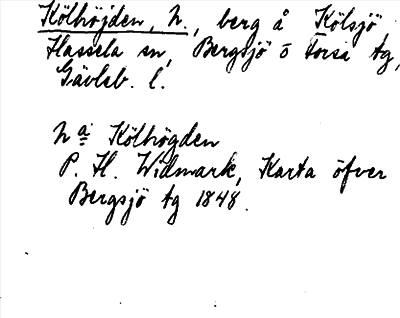 Kölhöjden, N., berg å Kölsjö
Hassela sn, Bergsjö o Forsa tg,
Gävleb. l.
Na Kölhögden
P. H. Widmark, Karta öfver
Bergsjö tg 1848.